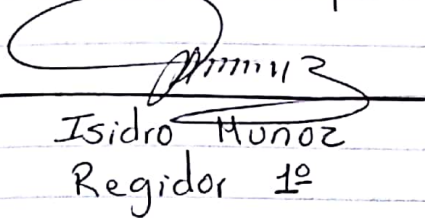 Isidro Munoz
Regidor 1º